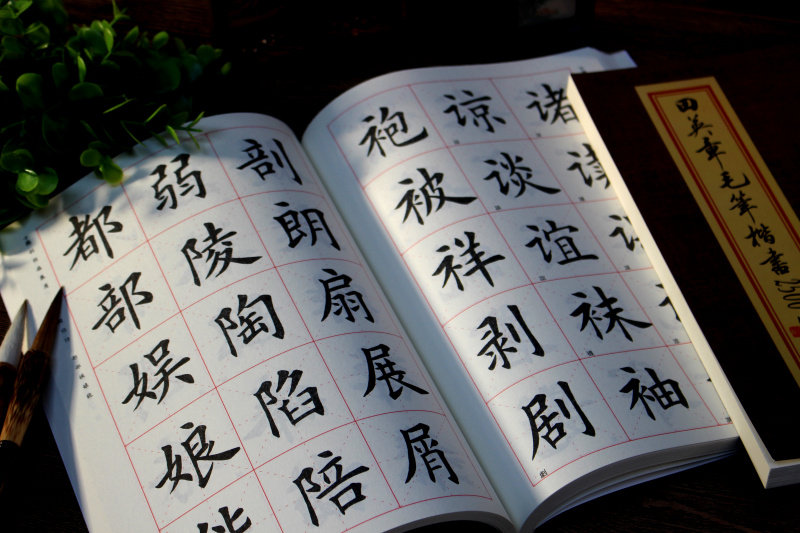 诸读
谅谈谊袜袖
袍被祥剥剧
剖朗扇展屑
弱陵陶陷陪
都部娱娘能
田英章毛笔楷书2500